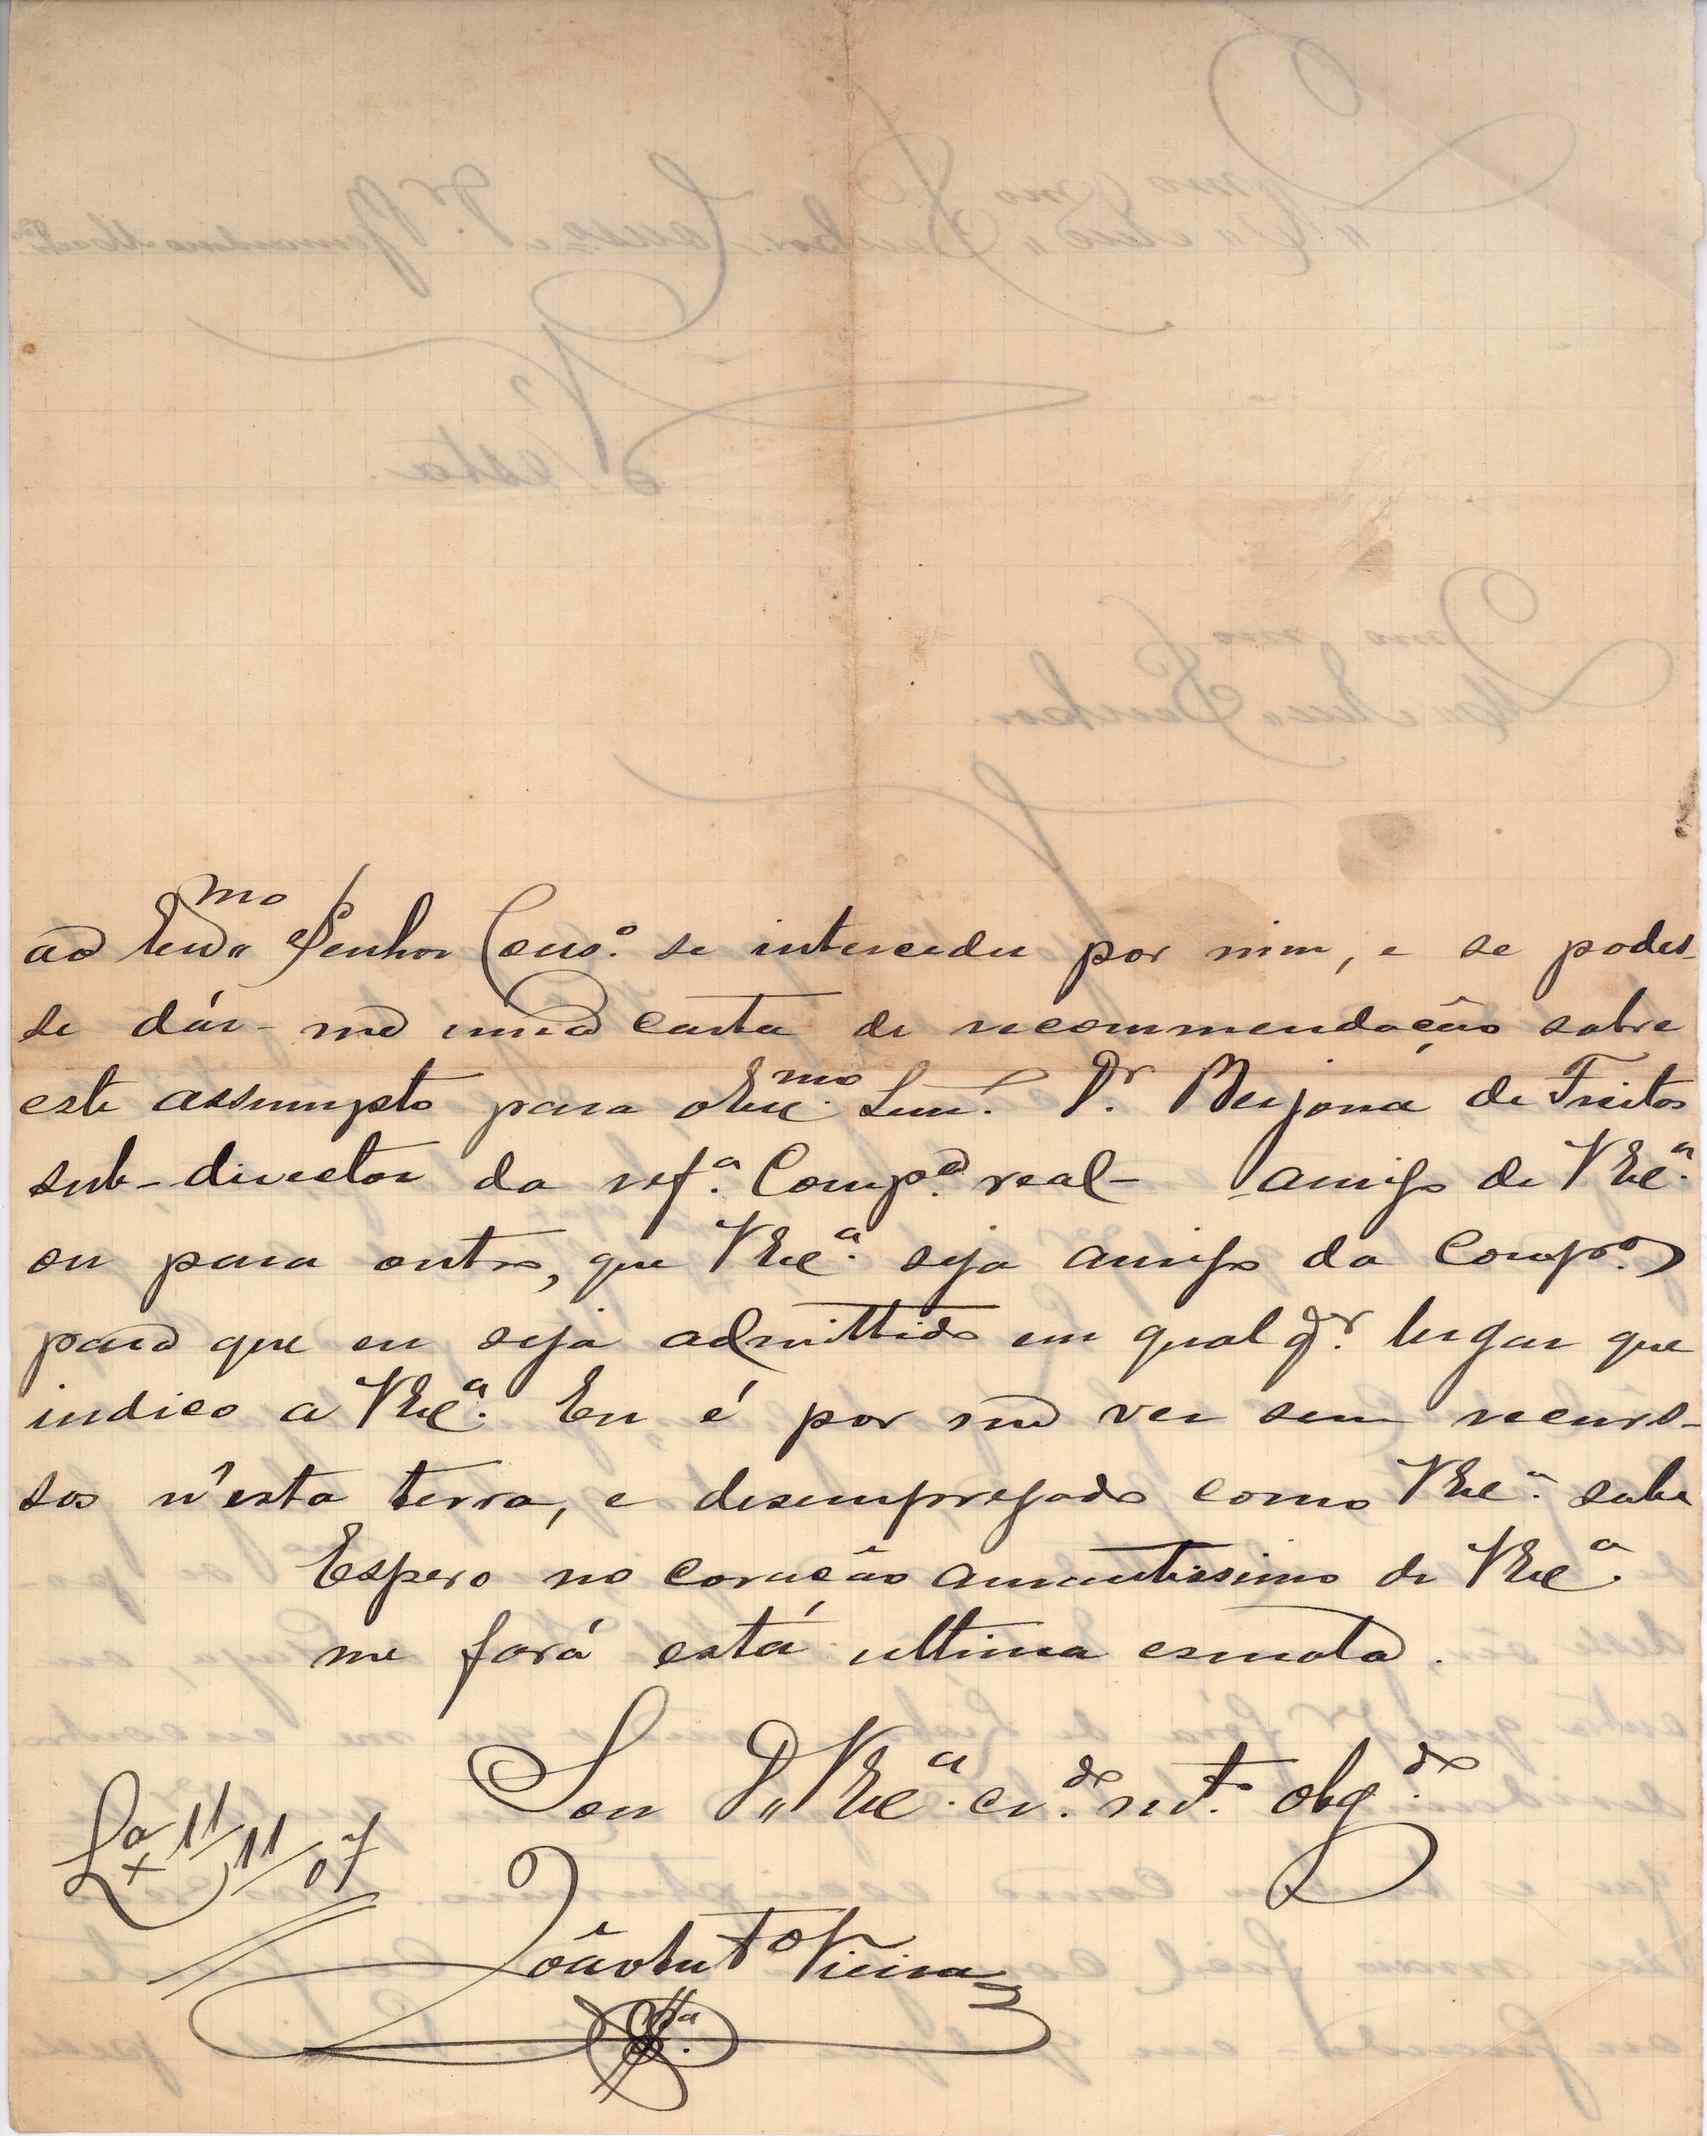 ao Exmo Senhor Conso. se interceder por mim, e se podes-
se dár-me uma carta de recommendação sobre
este assumpto para o Exmo. Snr. Dr. Beijona de Freitas
sub-director da refa. Compa. real- amigo de VExca.
ou para outro, que VExca. seja amigo da Compa.
para que eu seja admittido em qualqr. lugar que
indico a VExca. Eu é por me ver sem recurs-
sos n'esta terra, e desempregado como VExca. sabe
Espero no coração amantissimo de VExca.
me fará está ultima esmola.
Sou D" VExca. cr.do obg.do
Lxa 11/11/07
João Vieira